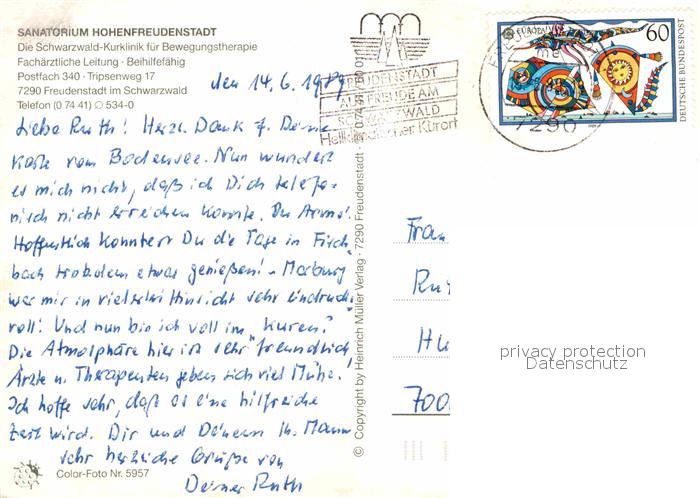 SANATORIUM HOHENFREUDENSTADT
Die Schwarzwald-Kurklinik für Bewegungstherapie
Fachärztliche Leitung · Beihilfefähig
Postfach 340 · Tripsenweg 17
7290 Freudenstadt im Schwarzwald
Telefon (0 74 41) 534-0
den 14.6.1989
Liebe Ruth! Herzl. Dank f. Deine
Karte vom Bodensee. Nun wundert
es mich nicht, daß ich Dich telefo-
nisch nicht erreichen konnte. Du Arme!
Hoffentlich konntest Du die Tage in Fisch-
bach trotzdem etwas genießen! - Marburg
war mir in vielerlei Hinsicht sehr eindrucks-
voll! Und nun bin ich voll im "Kuren".
Die Atmosphäre hier ist sehr "freundlich",
Ärzte u. Therapeuten geben sich viel Mühe.
Ich hoffe sehr, daß es eine hilfreiche
Zeit wird. Dir und Deinem lb. Mann
sehr herzliche Grüße von
Deiner Ruth
Color-Foto Nr. 5957
© Copyright by Heinrich Müller Verlag · 7290 Freudenstadt ·
FREUDENSTADT
AUS FREUDE AM
SCHWARZWALD
Heilklimatischer Kurort
7290
EUROPA
60
DEUTSCHE BUNDESPOST
Frau
Hu
700
privacy protection
Datenschutz